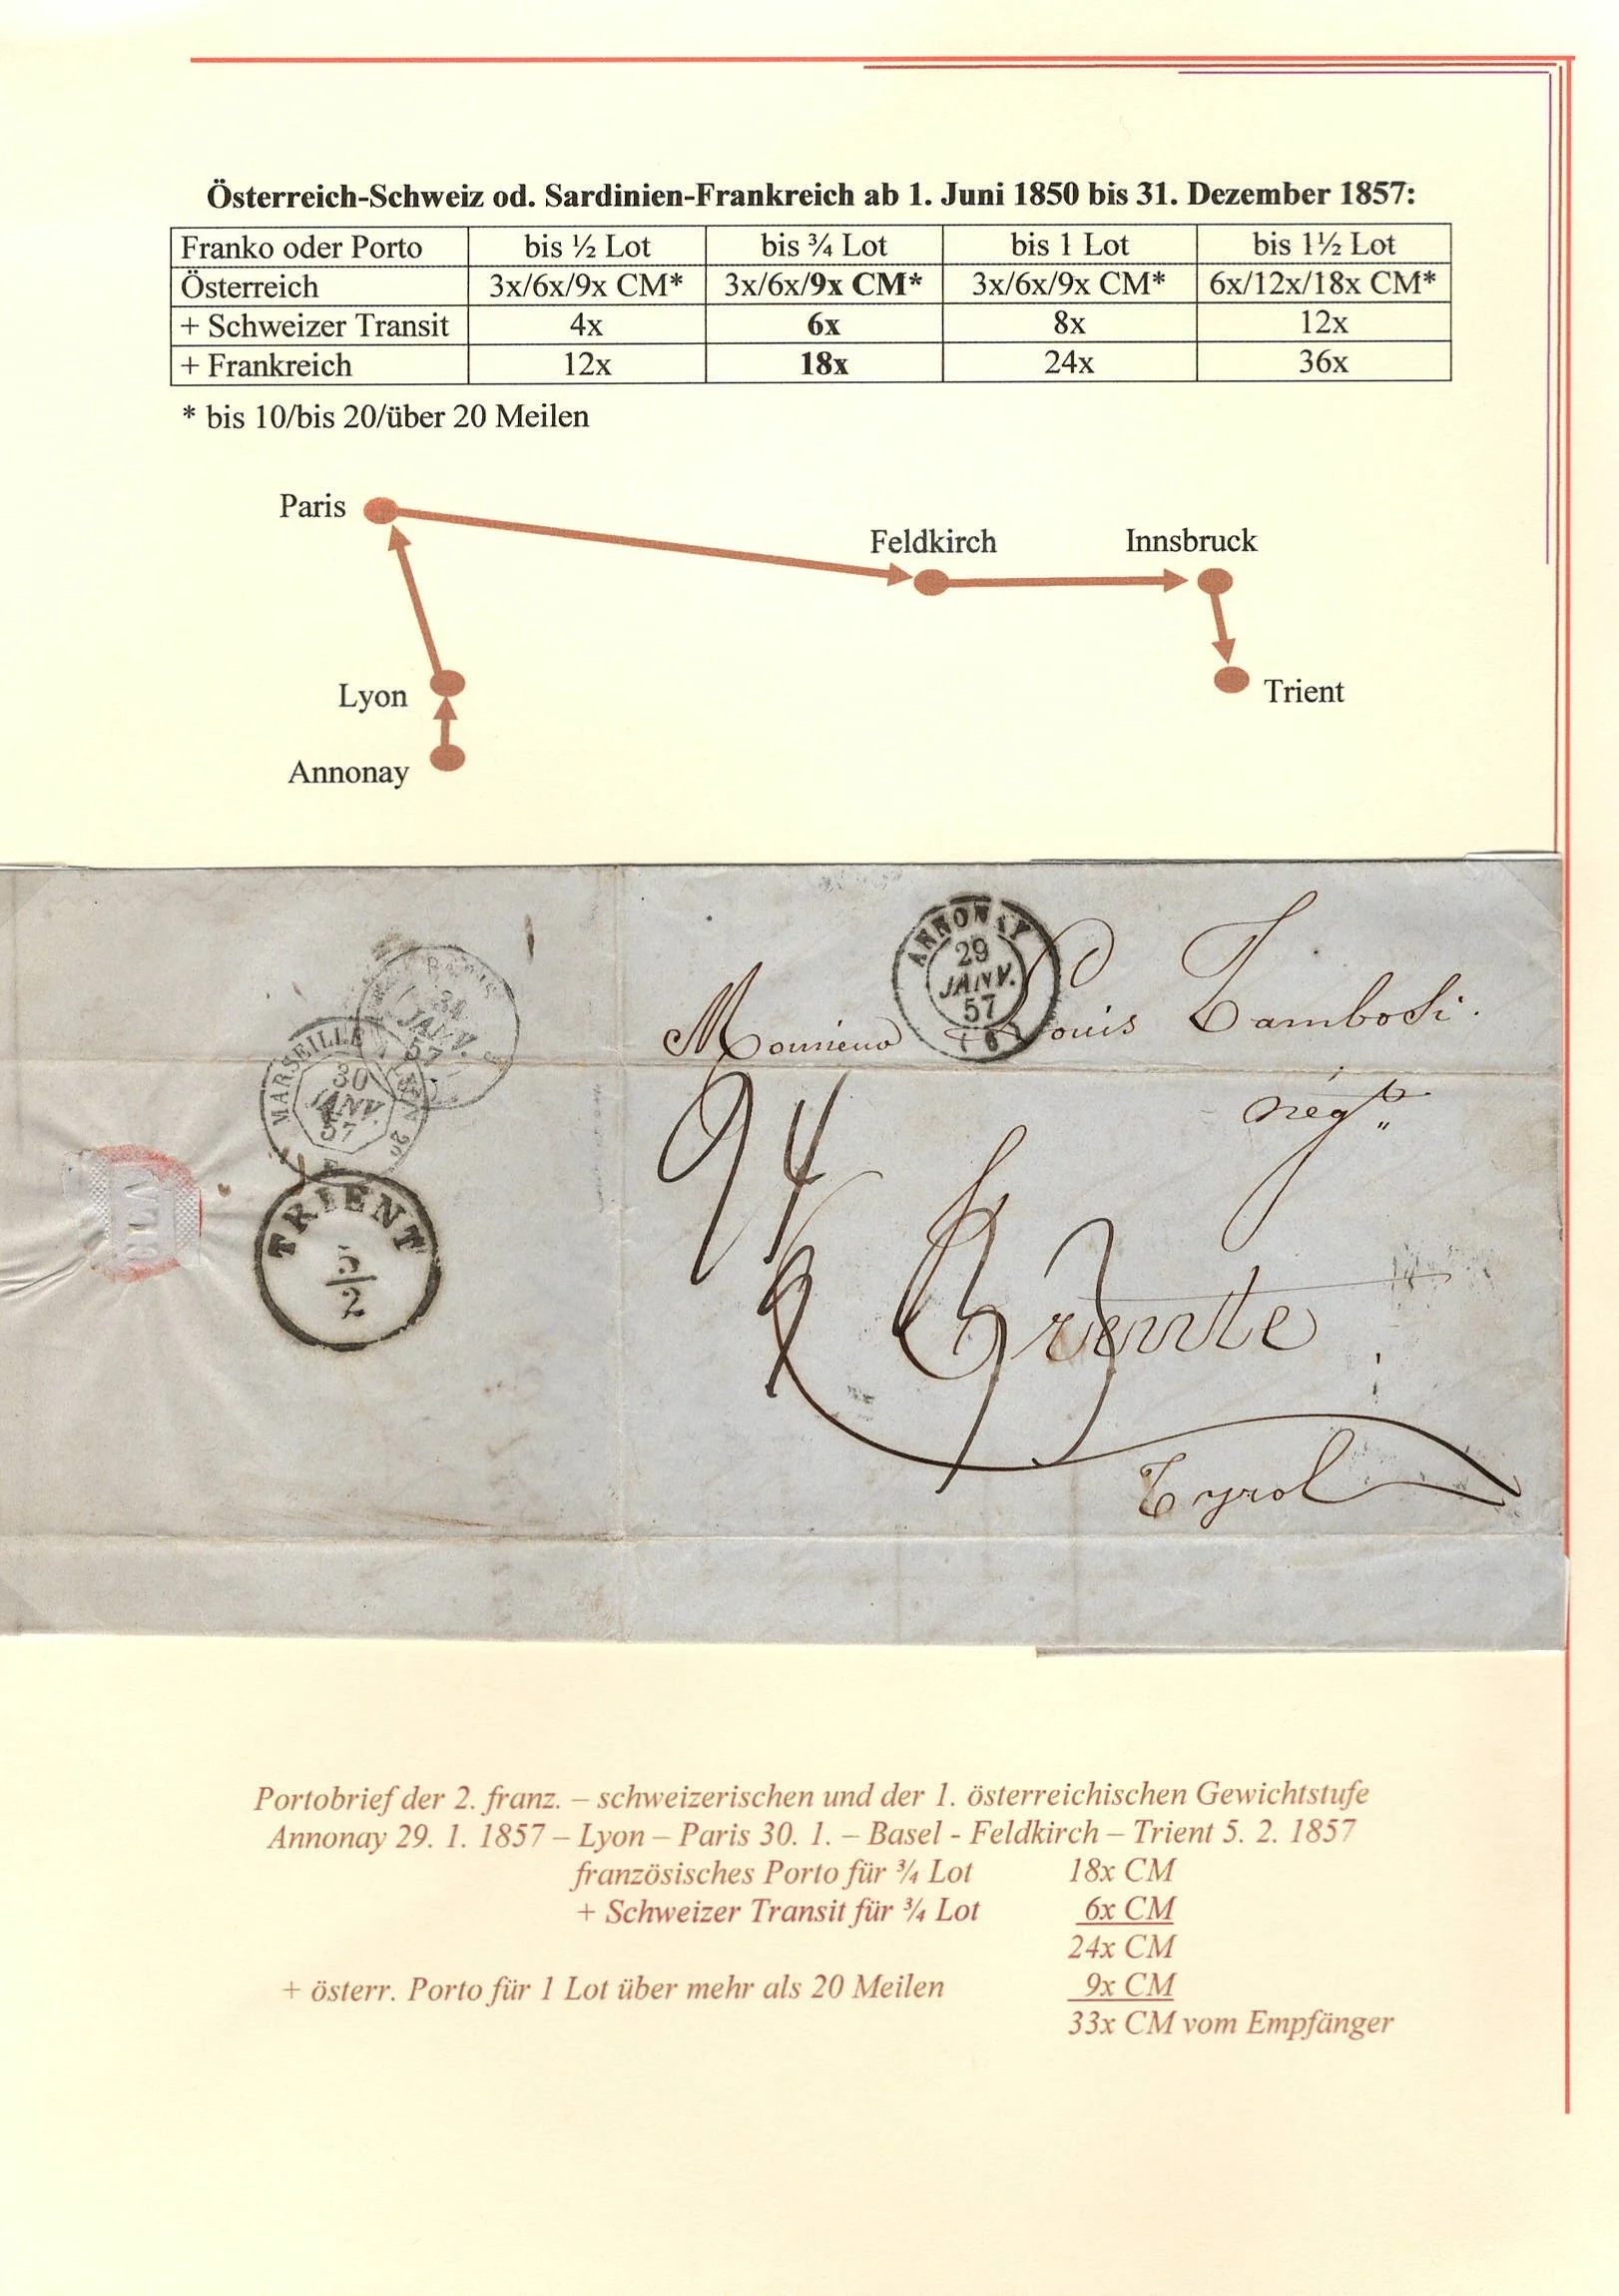 Österreich-Schweiz od. Sardinien-Frankreich ab 1. Juni 1850 bis 31. Dezember 1857:
Franko oder Porto bis ½ Lot bis ¾ Lot bis 1 Lot bis 1½ Lot
Österreich 3x/6x/9x CM* 3x/6x/9x CM* 3x/6x/9x CM* 6x/12x/18x CM*
+ Schweizer Transit 4x 6x 8x 12x
+ Frankreich 12x 18x 24x 36x
* bis 10/bis 20/über 20 Meilen
Paris
Feldkirch
Innsbruck
Lyon
Trient
Annonay
ANNONAY
29
JANV.
57
Monsieur Louis Tambosi.
négt
24
9
33
Trente
Tyrol
PARIS
JANV.
57
MARSEILLE
30
JANV.
57
TRIENT
5
2
Portobrief der 2. franz. – schweizerischen und der 1. österreichischen Gewichtstufe
Annonay 29. 1. 1857 – Lyon – Paris 30. 1. – Basel - Feldkirch – Trient 5. 2. 1857
französisches Porto für ¾ Lot 18x CM
+ Schweizer Transit für ¾ Lot 6x CM
24x CM
+ österr. Porto für 1 Lot über mehr als 20 Meilen 9x CM
33x CM vom Empfänger